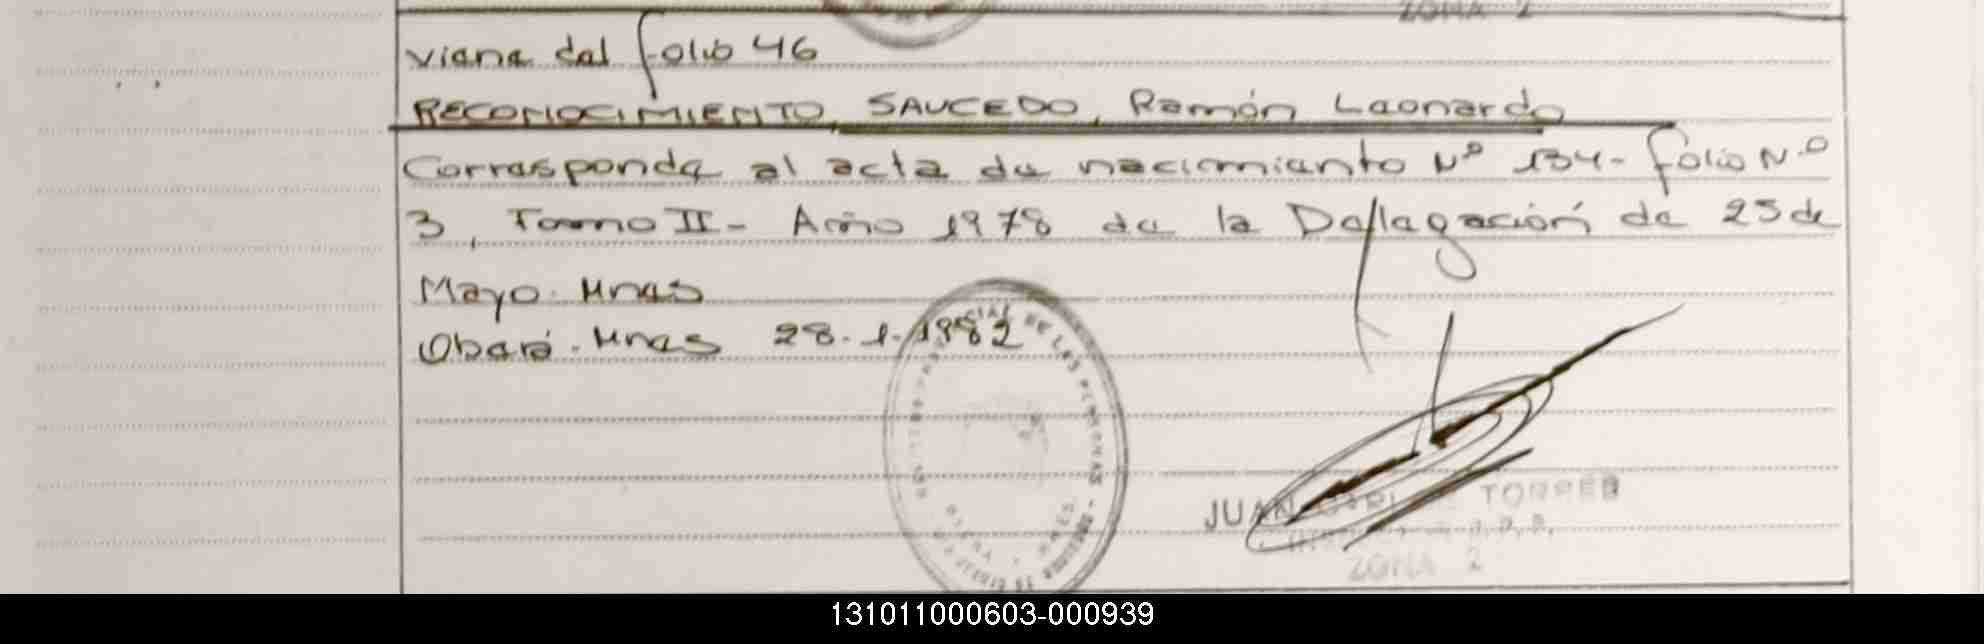 ZONA 2
viene del folio 46
RECONOCIMIENTO, SAUCEDO, Ramón Leonardo
Corresponde al acta de nacimiento Nº 134- folio Nº
3, Tomo II- Año 1978 de la Delegación de 25 de
Mayo. Mnes
Oberá. Mnes 28.1.1982
DE LAS PERSONAS
JUAN TORRES
ZONA 2
131011000603-000939